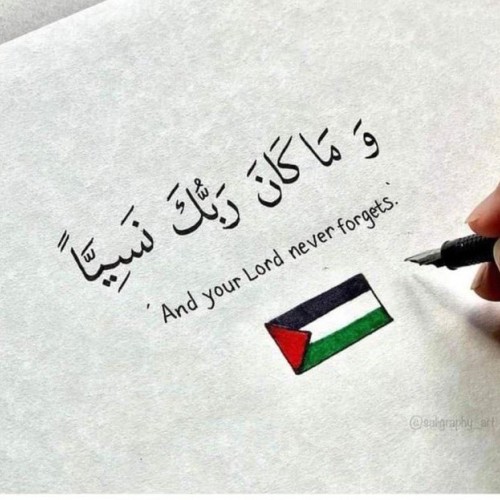 وَ مَا كَانَ رَبُّكَ نَسِيًّا
'And your Lord never forgets.'
@suligraphy_art